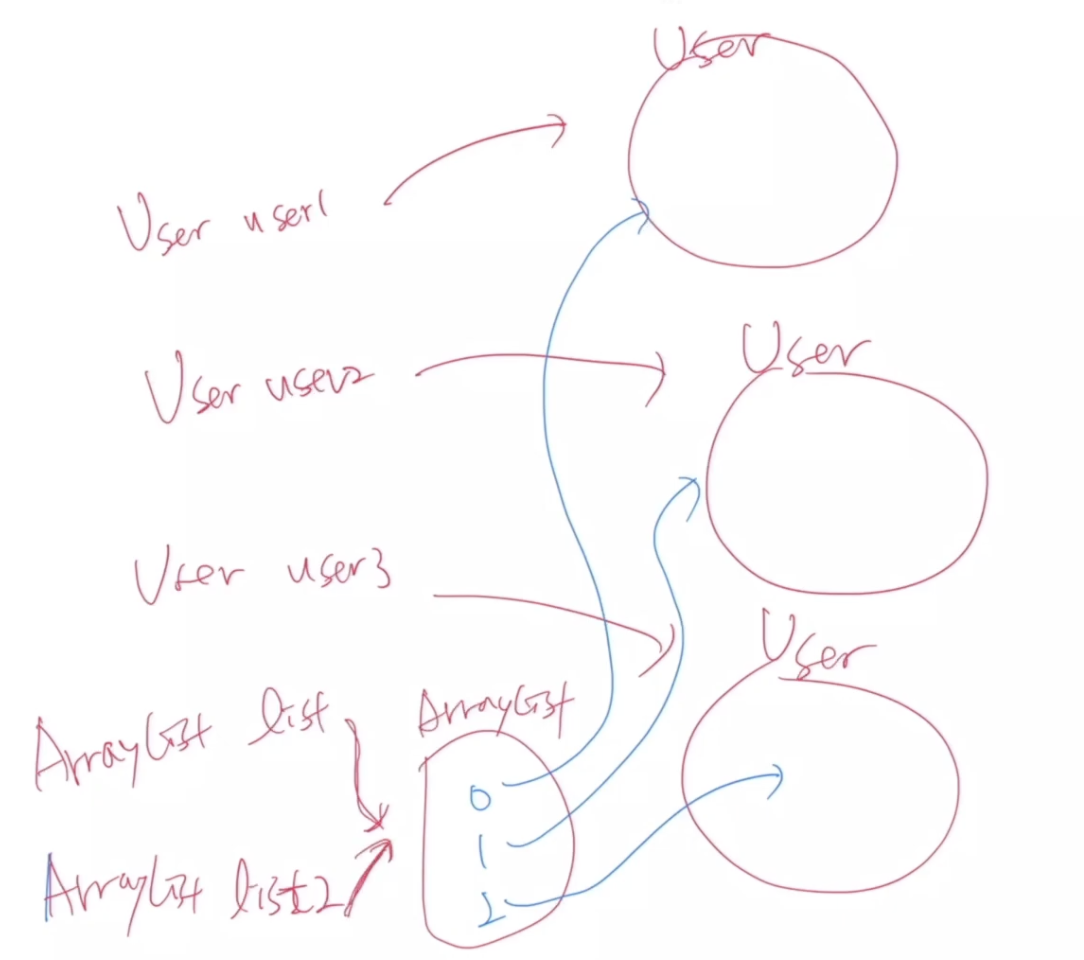 User
User user1
User
User user2
User user3
User
ArrayList list
ArrayList
0
1
2
ArrayList list2